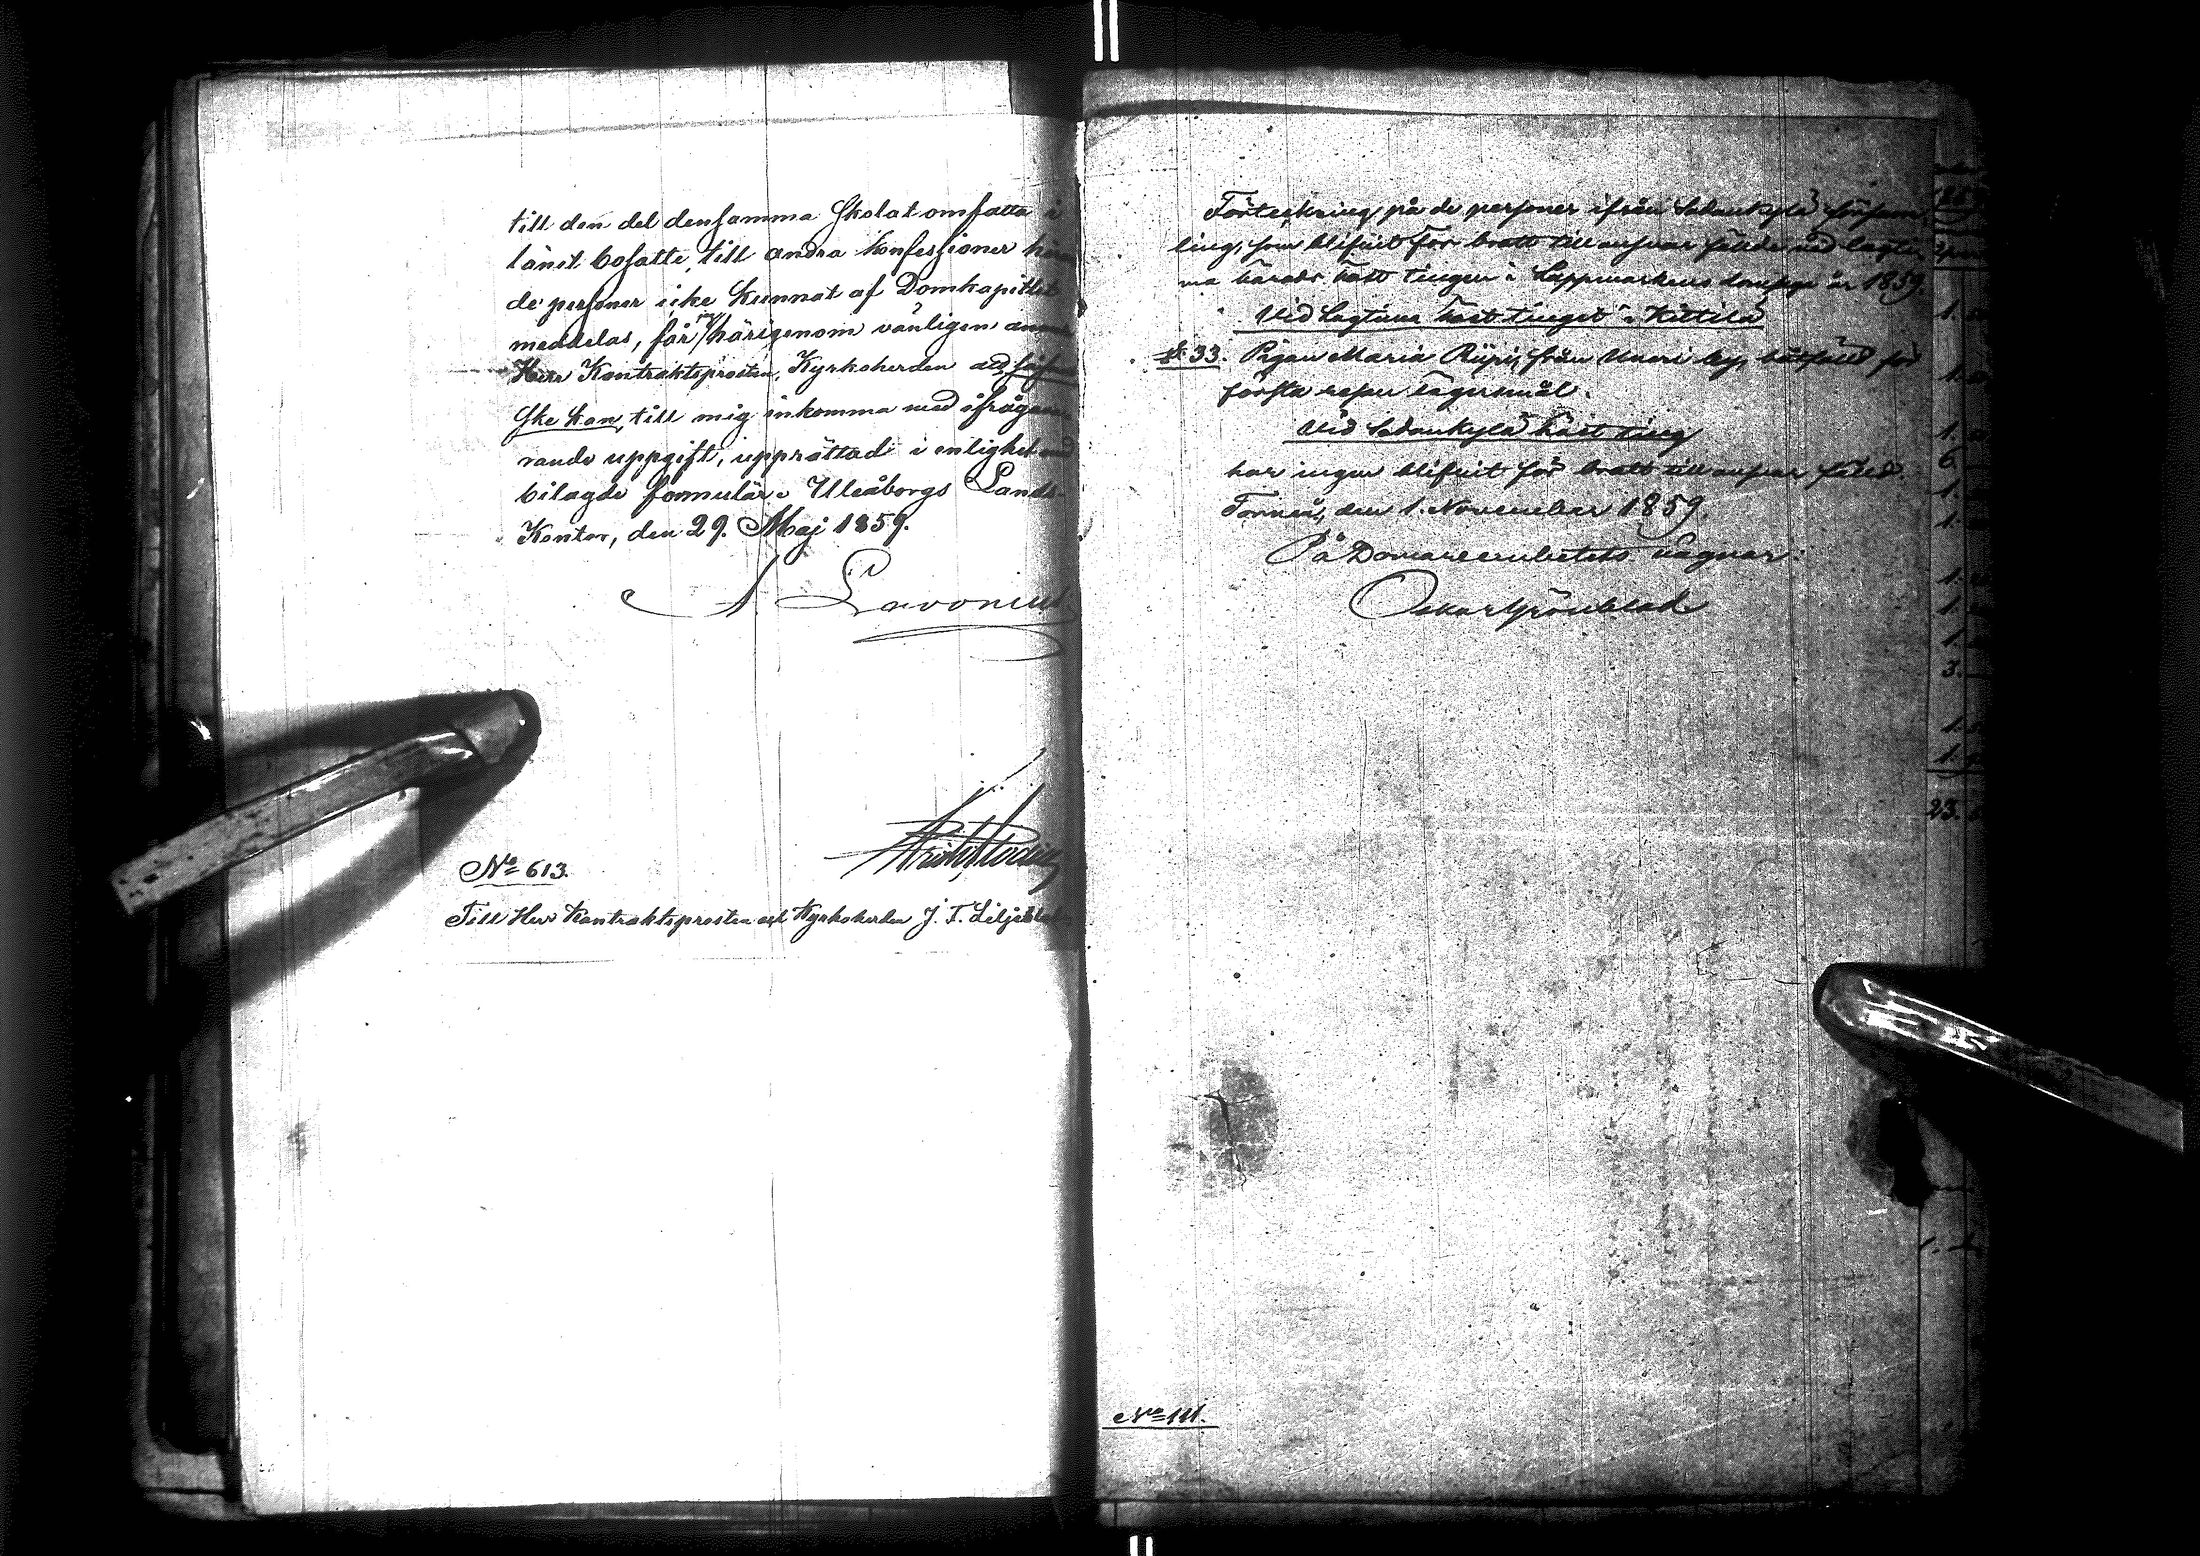 till den del densamma skolat omfatta i
länet bosatte, till andra konfessioner hö
de personer icke kunnat af Domkapitlet
meddelas, får jag härigenom vänligen an
Herr Kontraktsprosten, Kyrkoherden att, såf
ske kan, till mig inkomma med ifrågava
rande uppgift, upprättad i enlighet med
bilagde formulär. Uleåborgs Lands
Kontor, den 29. Maj 1859.
A Lavonius
No 613.
Till Herr Kontraktsprosten och Kyrkoherden J. F. Liljeblad
Förteckning på de personer ifrån Sodankylä försam
ling, som blifvit för brott till ansvar fällde vid lagtim
ma härads höst tingen i Lappmarkens domsaga år 1859.
Vid lagtima höst tinget i Kittilä
§ 33. Pigan Maria Riipi, från Unari by, botfälld för
första resan lägersmål.
Vid Sodankylä höst ting
har ingen blifvit för brott till ansvar fälld.
Torneå, den 1. November 1859.
På Domareembetets vägnar:
Oskar Grönblad
No 111.